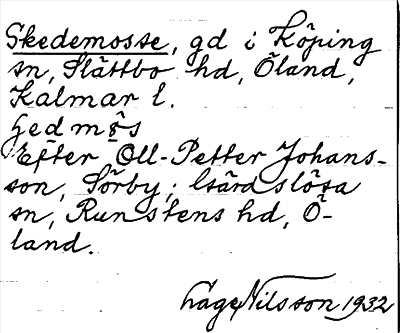 Skedemosse, gd i Köping
sn, Slättbo hd, Öland,
Kalmar l.
Efter Oll-Petter Johans-
son, Sörby, Gärdslösa
sn, Runstens hd, Ö-
land.
Gage Nilsson 1932